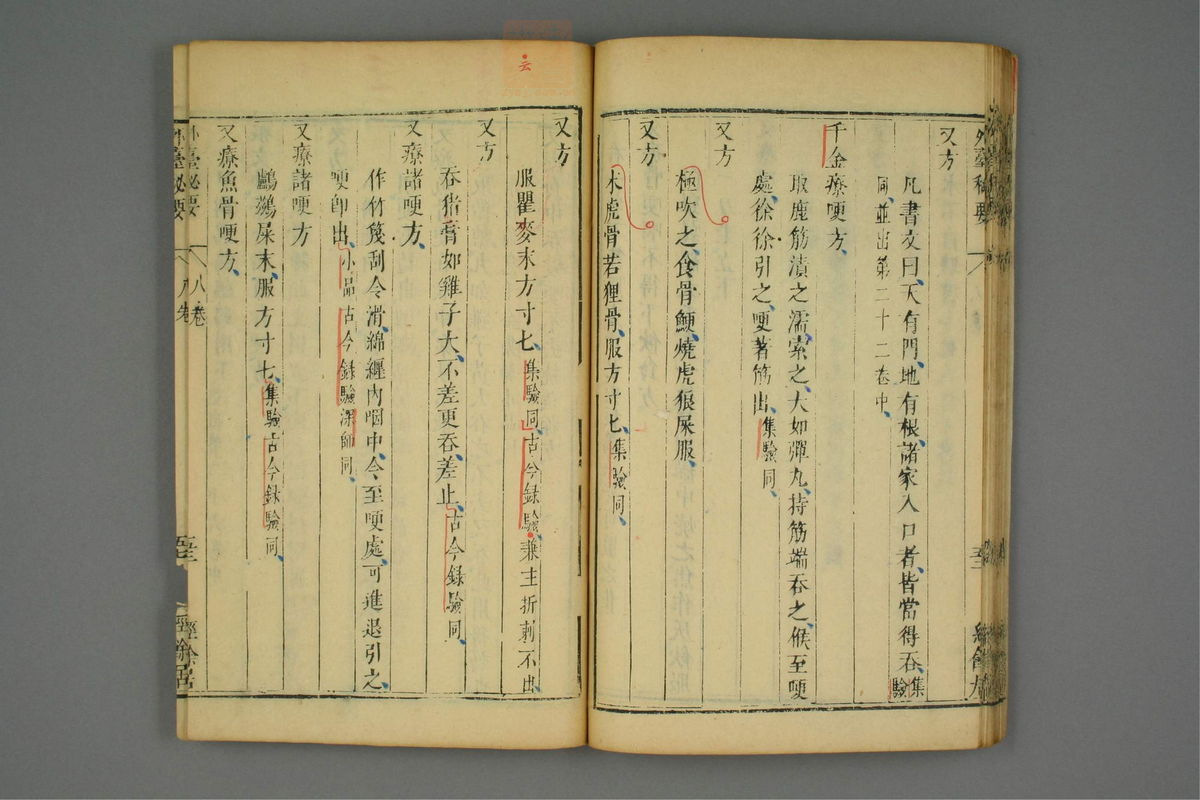 外臺秘要
又方
凡書文曰、天有門、地有根、諸家入口者、皆當得吞、集驗
同、並出第二十二卷中、
千金療哽方、
取鹿筋漬之濡、索之、大如彈丸、持筋端吞之、候至哽
處、徐徐引之、哽著筋出、集驗同、
又方
極吹之、食骨鯁、燒虎狼屎服、
又方
木虎骨若狸骨、服方寸匕、集驗同、
又方
服瞿麥末方寸匕、集驗同、古今録驗、兼主折刺不出、
又方
吞猪膏如雞子大、不差更吞、差止、古今録驗同、
又療諸哽方、
作竹篾刮令滑、綿纒內咽中、令至哽處、可進退引之、
哽即出、小品古今録驗深師同、
又療諸哽方
鸕鷀屎末、服方寸匕、集驗古今録驗同、
又療魚骨哽方、
外臺秘要
八卷
經餘居
云